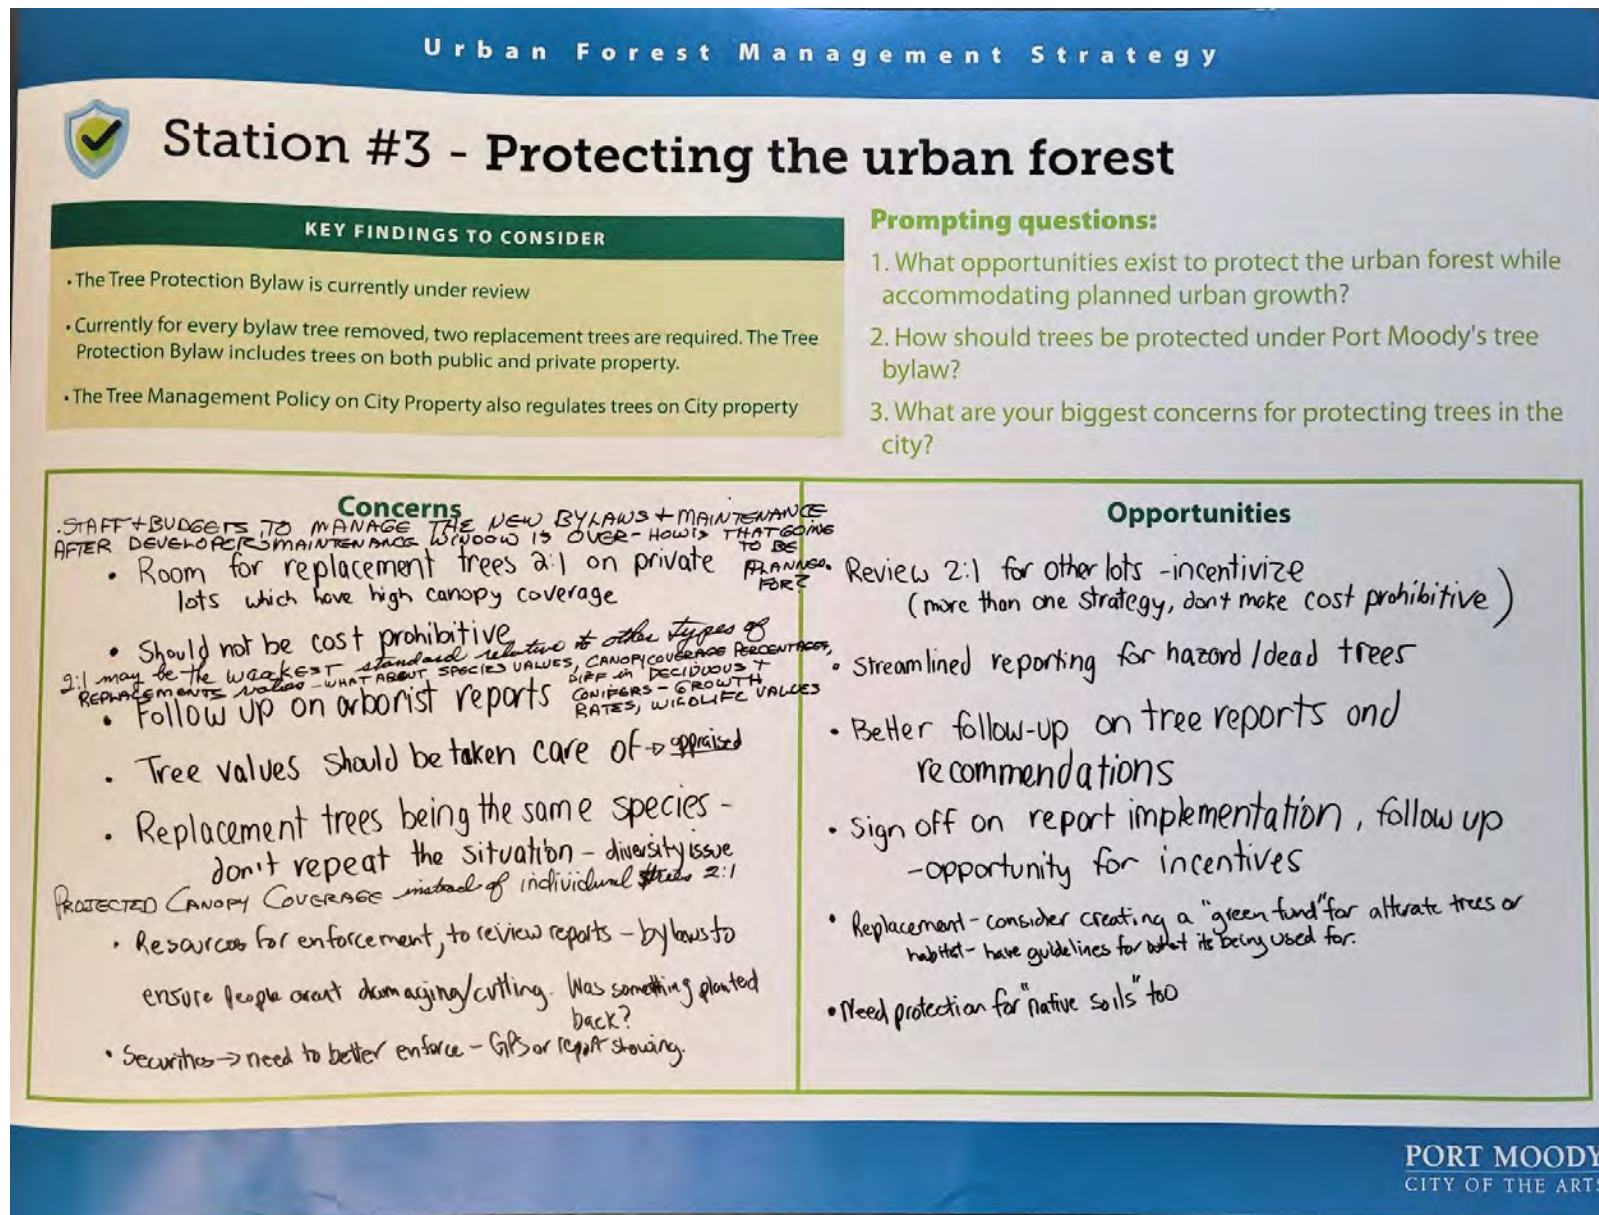 Urban Forest Management Strategy
Station #3 - Protecting the urban forest
KEY FINDINGS TO CONSIDER
• The Tree Protection Bylaw is currently under review
• Currently for every bylaw tree removed, two replacement trees are required. The Tree
Protection Bylaw includes trees on both public and private property.
• The Tree Management Policy on City Property also regulates trees on City property
Prompting questions:
1. What opportunities exist to protect the urban forest while
accommodating planned urban growth?
2. How should trees be protected under Port Moody's tree
bylaw?
3. What are your biggest concerns for protecting trees in the
city?
Concerns
. STAFF + BUDGETS TO MANAGE THE NEW BYLAWS + MAINTENANCE
AFTER DEVELOPERS MAINTENANCE WINDOW IS OVER - HOW IS THAT GOING
TO BE
PLANNED
FOR?
• Room for replacement trees 2:1 on private
lots which have high canopy coverage
• Should not be cost prohibitive
2:1 may be the weakest standard relative to other types of
REPLACEMENTS values - WHAT ABOUT SPECIES VALUES, CANOPY COVERAGE PERCENTAGES,
DIFF in DECIDUOUS +
CONIFERS - GROWTH
RATES, WILDLIFE VALUES
• Follow up on arborist reports
• Tree values should be taken care of → appraised
• Replacement trees being the same species -
don't repeat the situation - diversity issue
PROJECTED CANOPY COVERAGE instead of individual trees 2:1
• Resources for enforcement, to review reports - bylaws to
ensure people arent damaging/cutting. Was something planted
back?
• Securities → need to better enforce - GPS or report showing.
Opportunities
• Review 2:1 for other lots - incentivize
(more than one strategy, don't make cost prohibitive)
• Streamlined reporting for hazard/dead trees
• Better follow-up on tree reports and
recommendations
• Sign off on report implementation, follow up
- opportunity for incentives
• Replacement - consider creating a "green fund" for alterate trees or
habitat - have guidelines for what its being used for.
• Need protection for "native soils" too
PORT MOODY
CITY OF THE ARTS